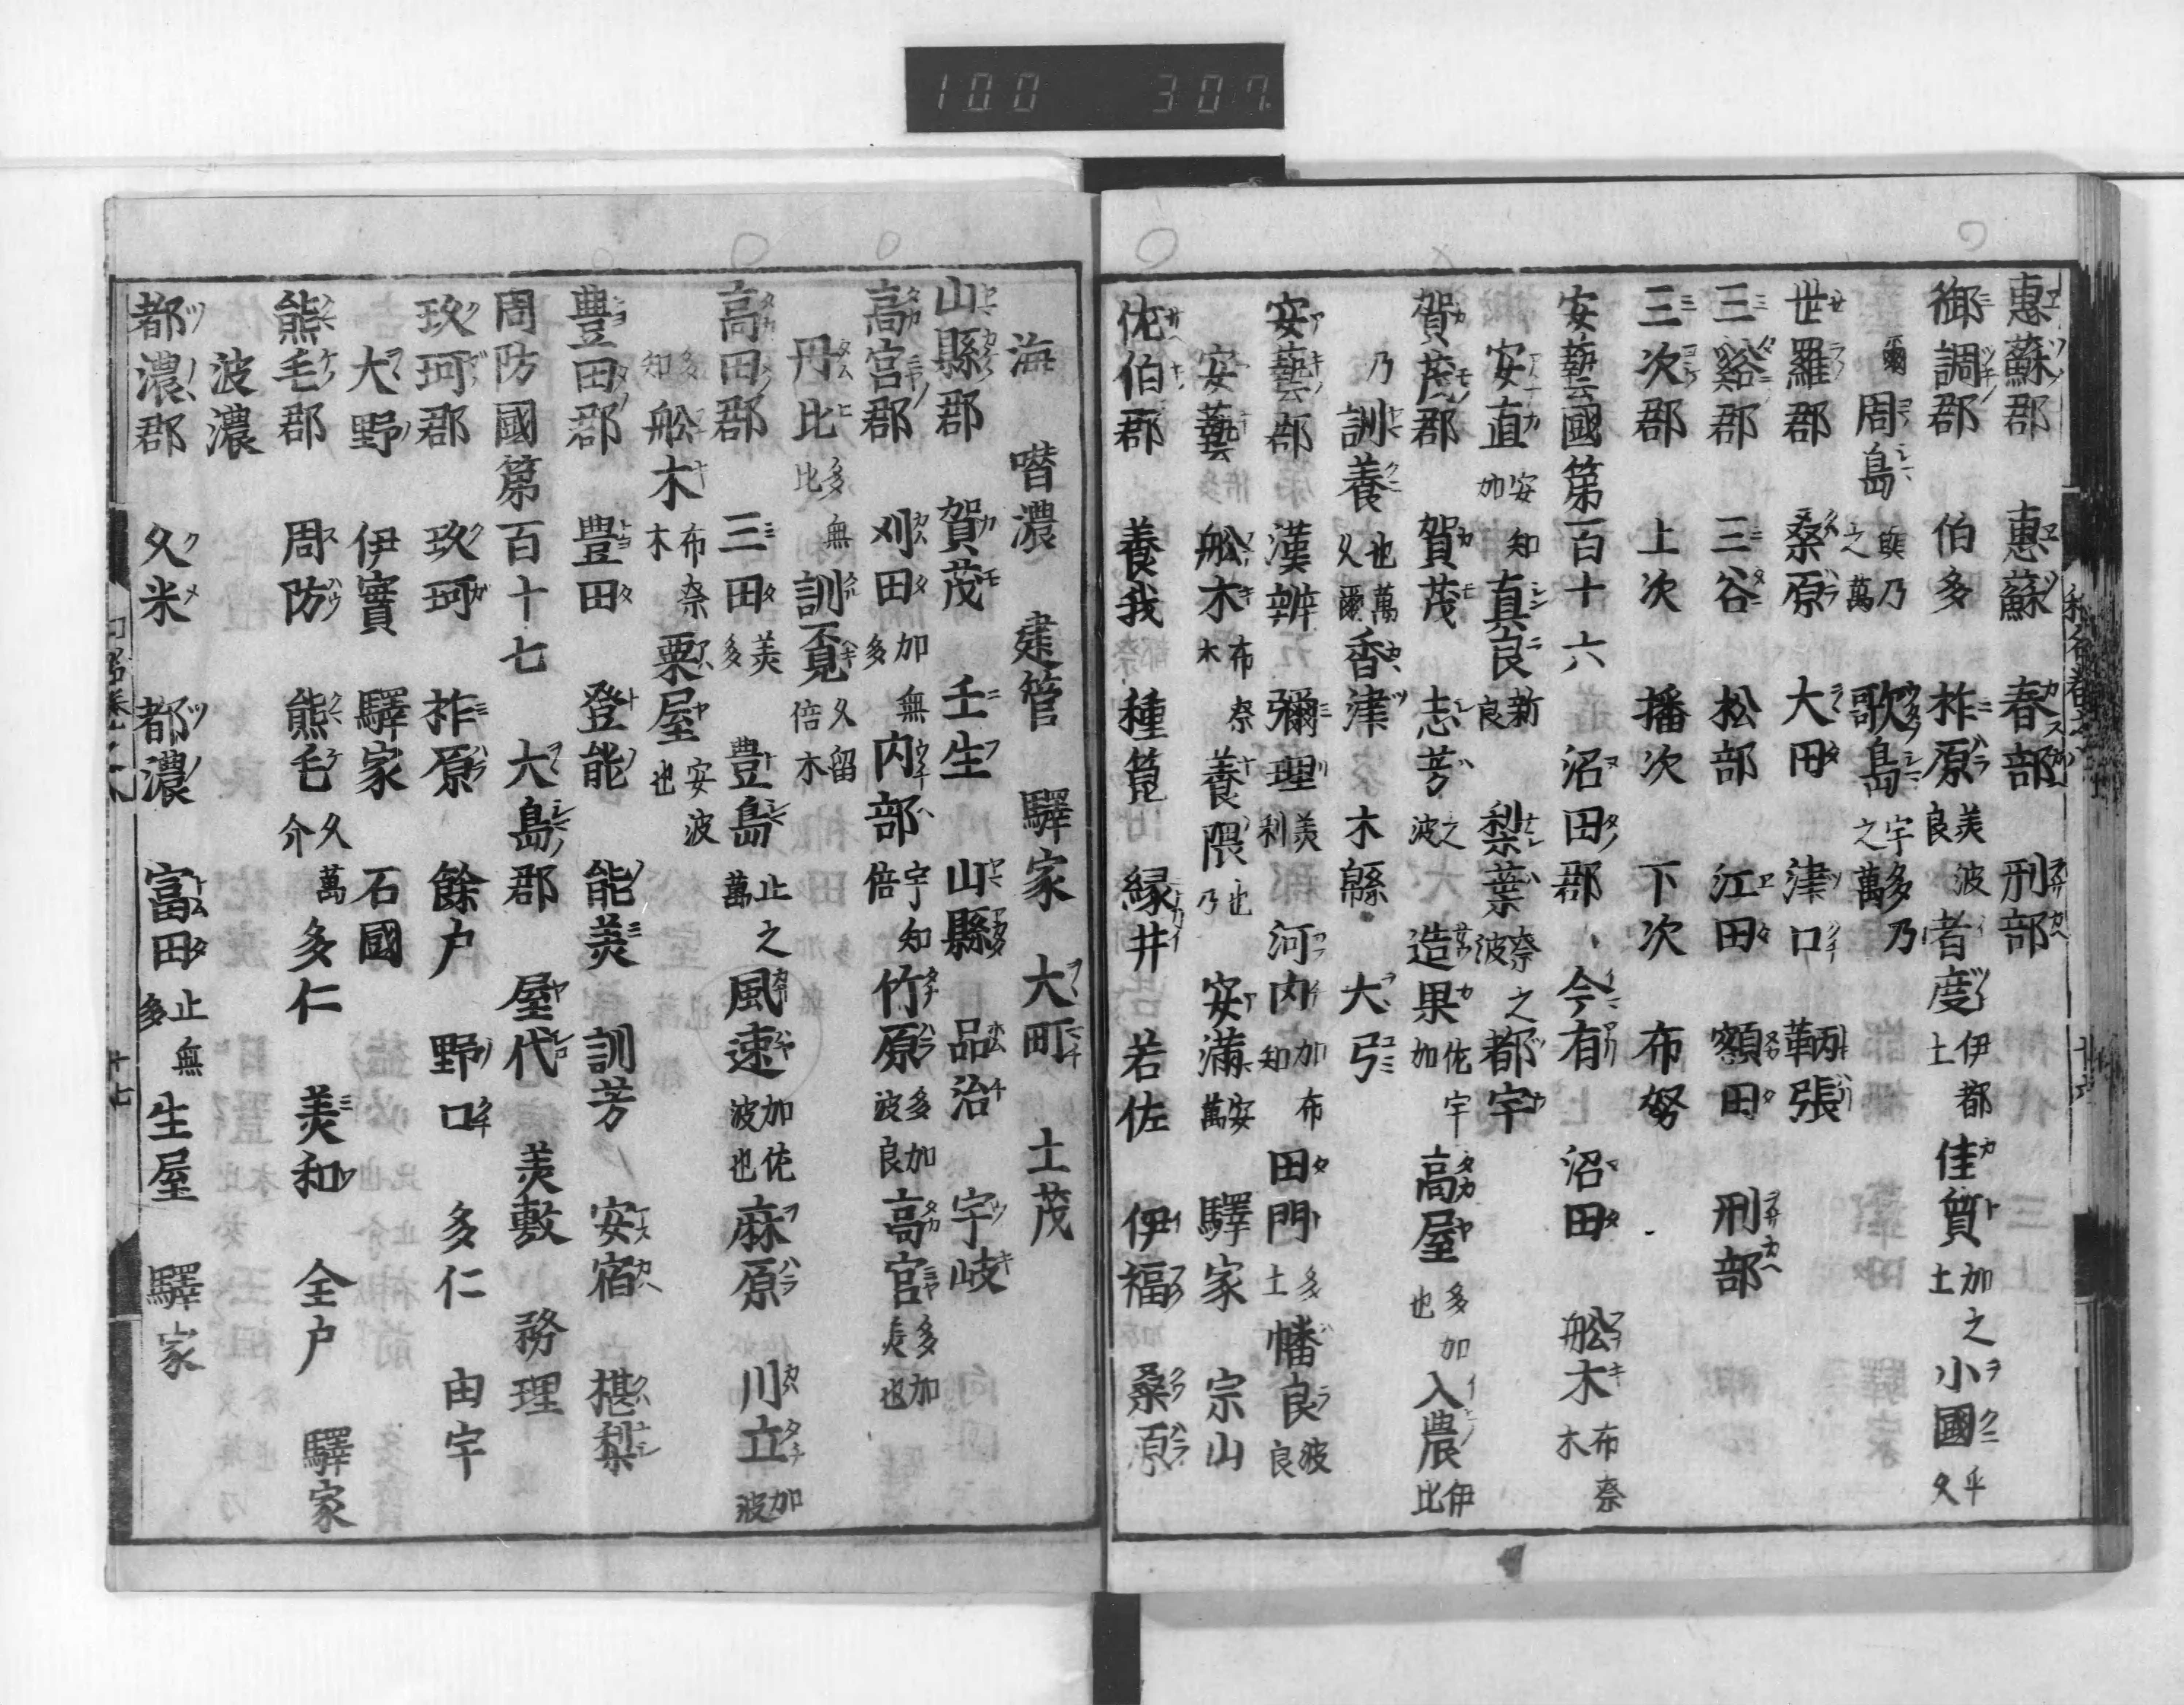 100 307
惠蘇郡 惠蘇 春部 刑部
御調郡 伯多 柞原美波良 者度伊都土 佳質加之土 小國乎久
爾 周島與乃之萬 歌島宇多乃之萬
世羅郡 桑原 大田 津口 鞆張
三谿郡 三谷 松部 江田 額田 刑部
三次郡 上次 播次 下次 布努
安藝國第百十六 沼田郡 今有 沼田 舩木布奈木
安直安知加 真良新良 梨葉奈之波 都宇
賀茂郡 賀茂 志芳之波 造果佐宇加 高屋多加也 入農伊比
乃 訓養也萬久爾 香津 木綿 大弓
安藝郡 漢辨 彌理美利 河内加布知 田門多土 幡良波良
安藝 舩木布奈木 養隈也乃 安滿安萬 驛家 宗山
佐伯郡 養我 種箆 緑井 若佐 伊福 桑原
海 㗸濃 建管 驛家 大町 土茂
山縣郡 賀茂 壬生 山縣 品治 宇岐
高宮郡 刈田加無多 内部宇知倍 竹原多加波良 高宮多加美也
丹比多無比 訓覓久留倍木
高田郡 三田美多 豊島止之萬 風速加佐波也 麻原 川立加波
多知 舩木布奈木 粟屋安波也
豊田郡 豊田 登能 能美 訓芳 安宿 椹梨
周防國第百十七 大島郡 屋代 美敷 務理
玖珂郡 玖珂 柞原 餘户 野口 多仁 由宇
大野 伊寶 驛家 石國
熊毛郡 周防 熊毛久萬介 多仁 美和 全户 驛家
波濃
都濃郡 久米 都濃 富田止無多 生屋 驛家
十七